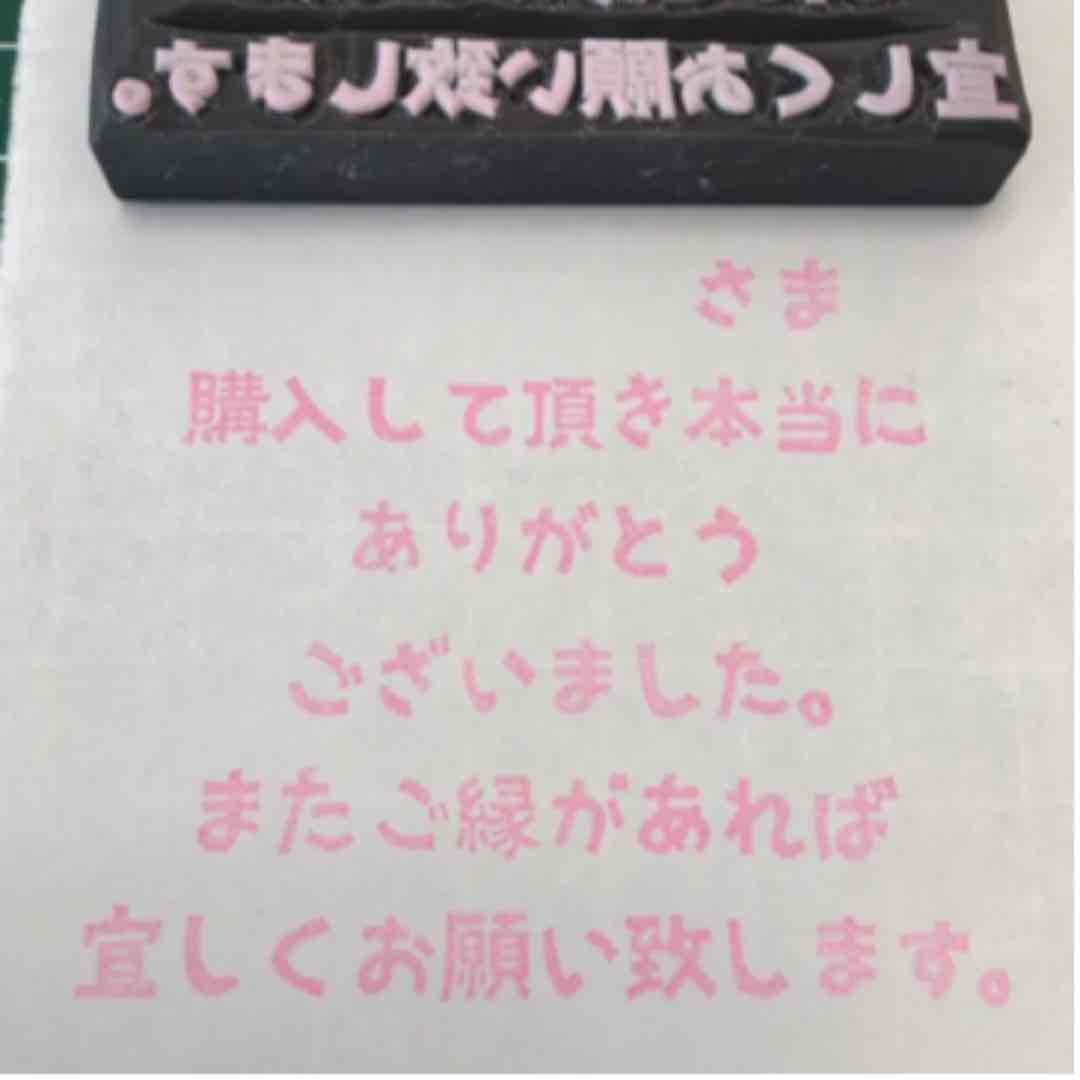 宜しくお願い致します。
さま
購入して頂き本当に
ありがとう
ございました。
またご縁があれば
宜しくお願い致します。